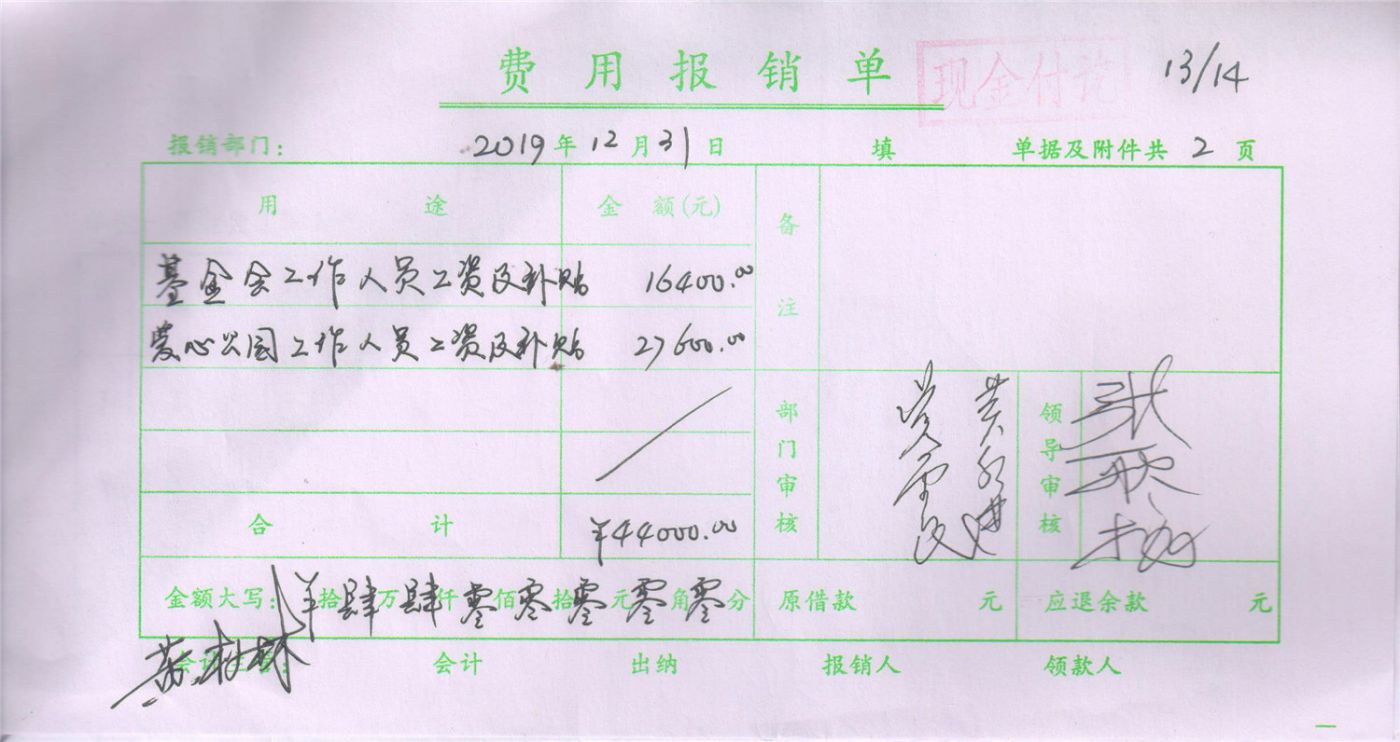 费用报销单 现金付讫 13/14
报销部门： 2019年12月31日 填 单据及附件共 2 页
用途 金额(元) 备注
基金会工作人员工资及补贴 16400.00
爱心公园工作人员工资及补贴 27600.00
部门审核 领导审核
合计 ¥44000.00
金额大写：¥拾肆万肆仟零佰零拾零元零角零分 原借款 元 应退余款 元
会计主管： 会计 出纳 报销人 领款人